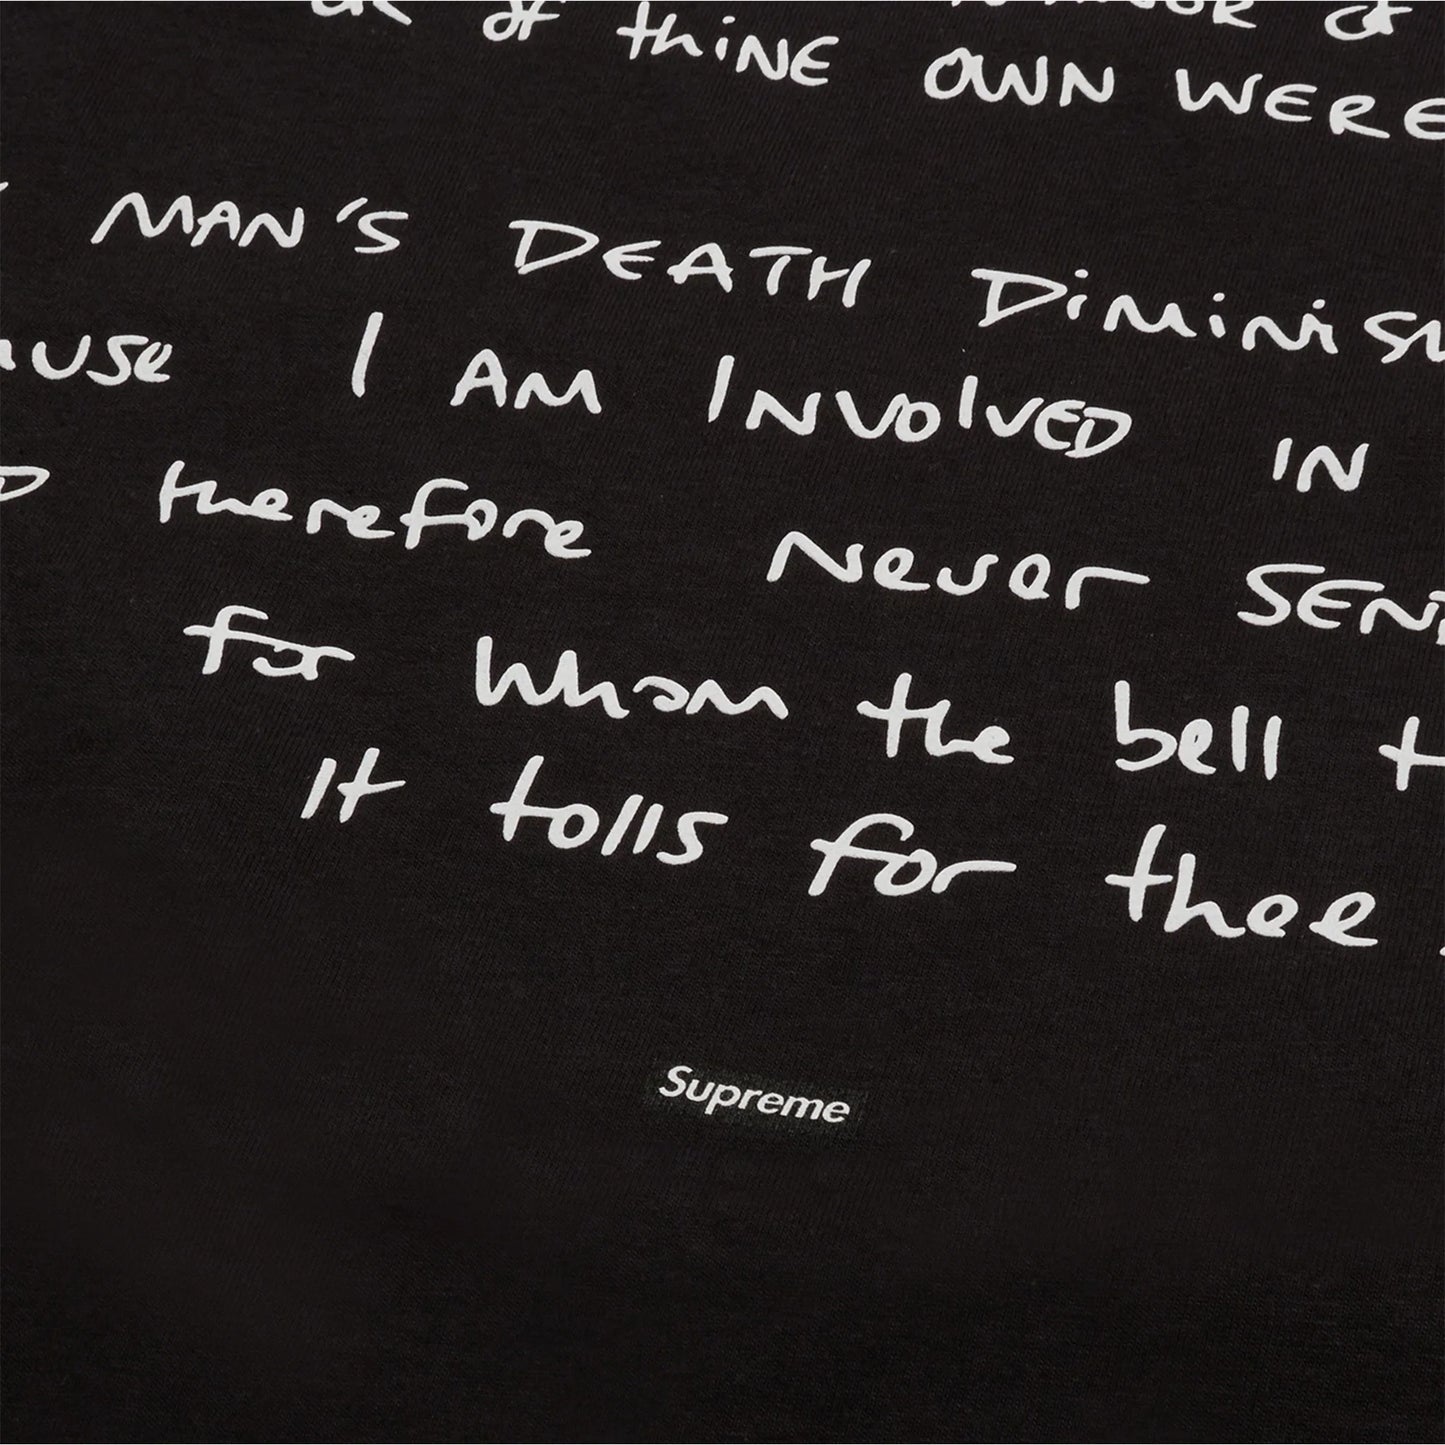 OR of thiNE OWN WERE
MAN'S DEATH DiMiNiSH
ause I AM INVOlVED IN
D therefore Never SEND
for Whom the bell t
It tolls for thee
Supreme